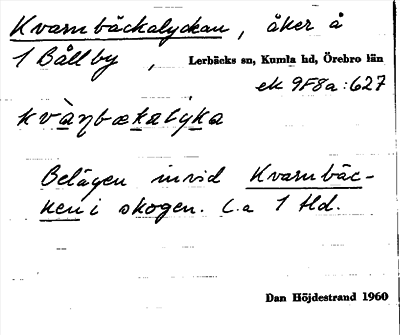 Kvarnbäckalyckan, åker å
1 Bållby, Lerbäcks sn, Kumla hd, Örebro län
ek 9F8a:627
kvàṇbækalyka
Belägen invid Kvarnbäc-
ken i skogen. C.a 1 tld.
Dan Höjdestrand 1960